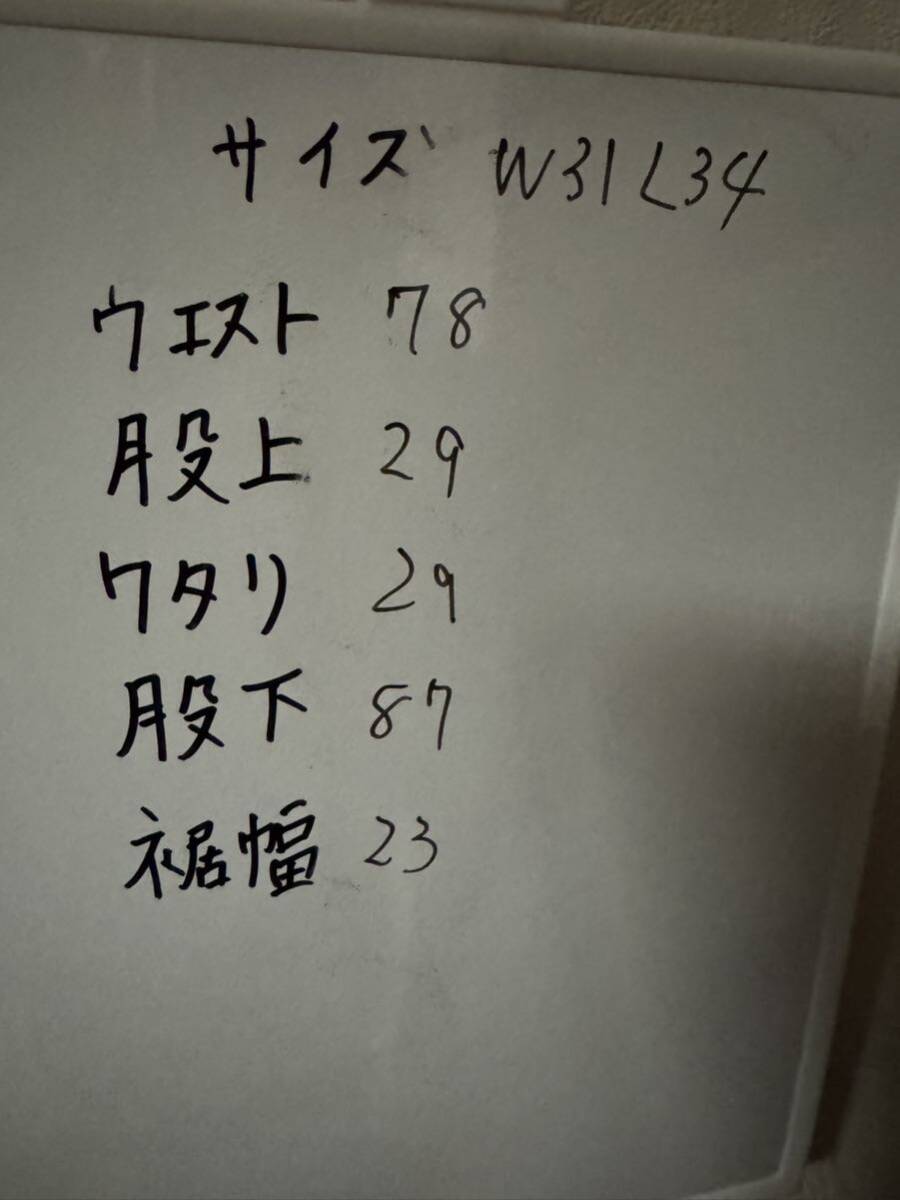 サイズ W31 L34
ウエスト 78
股上 29
ワタリ 29
股下 87
裾幅 23